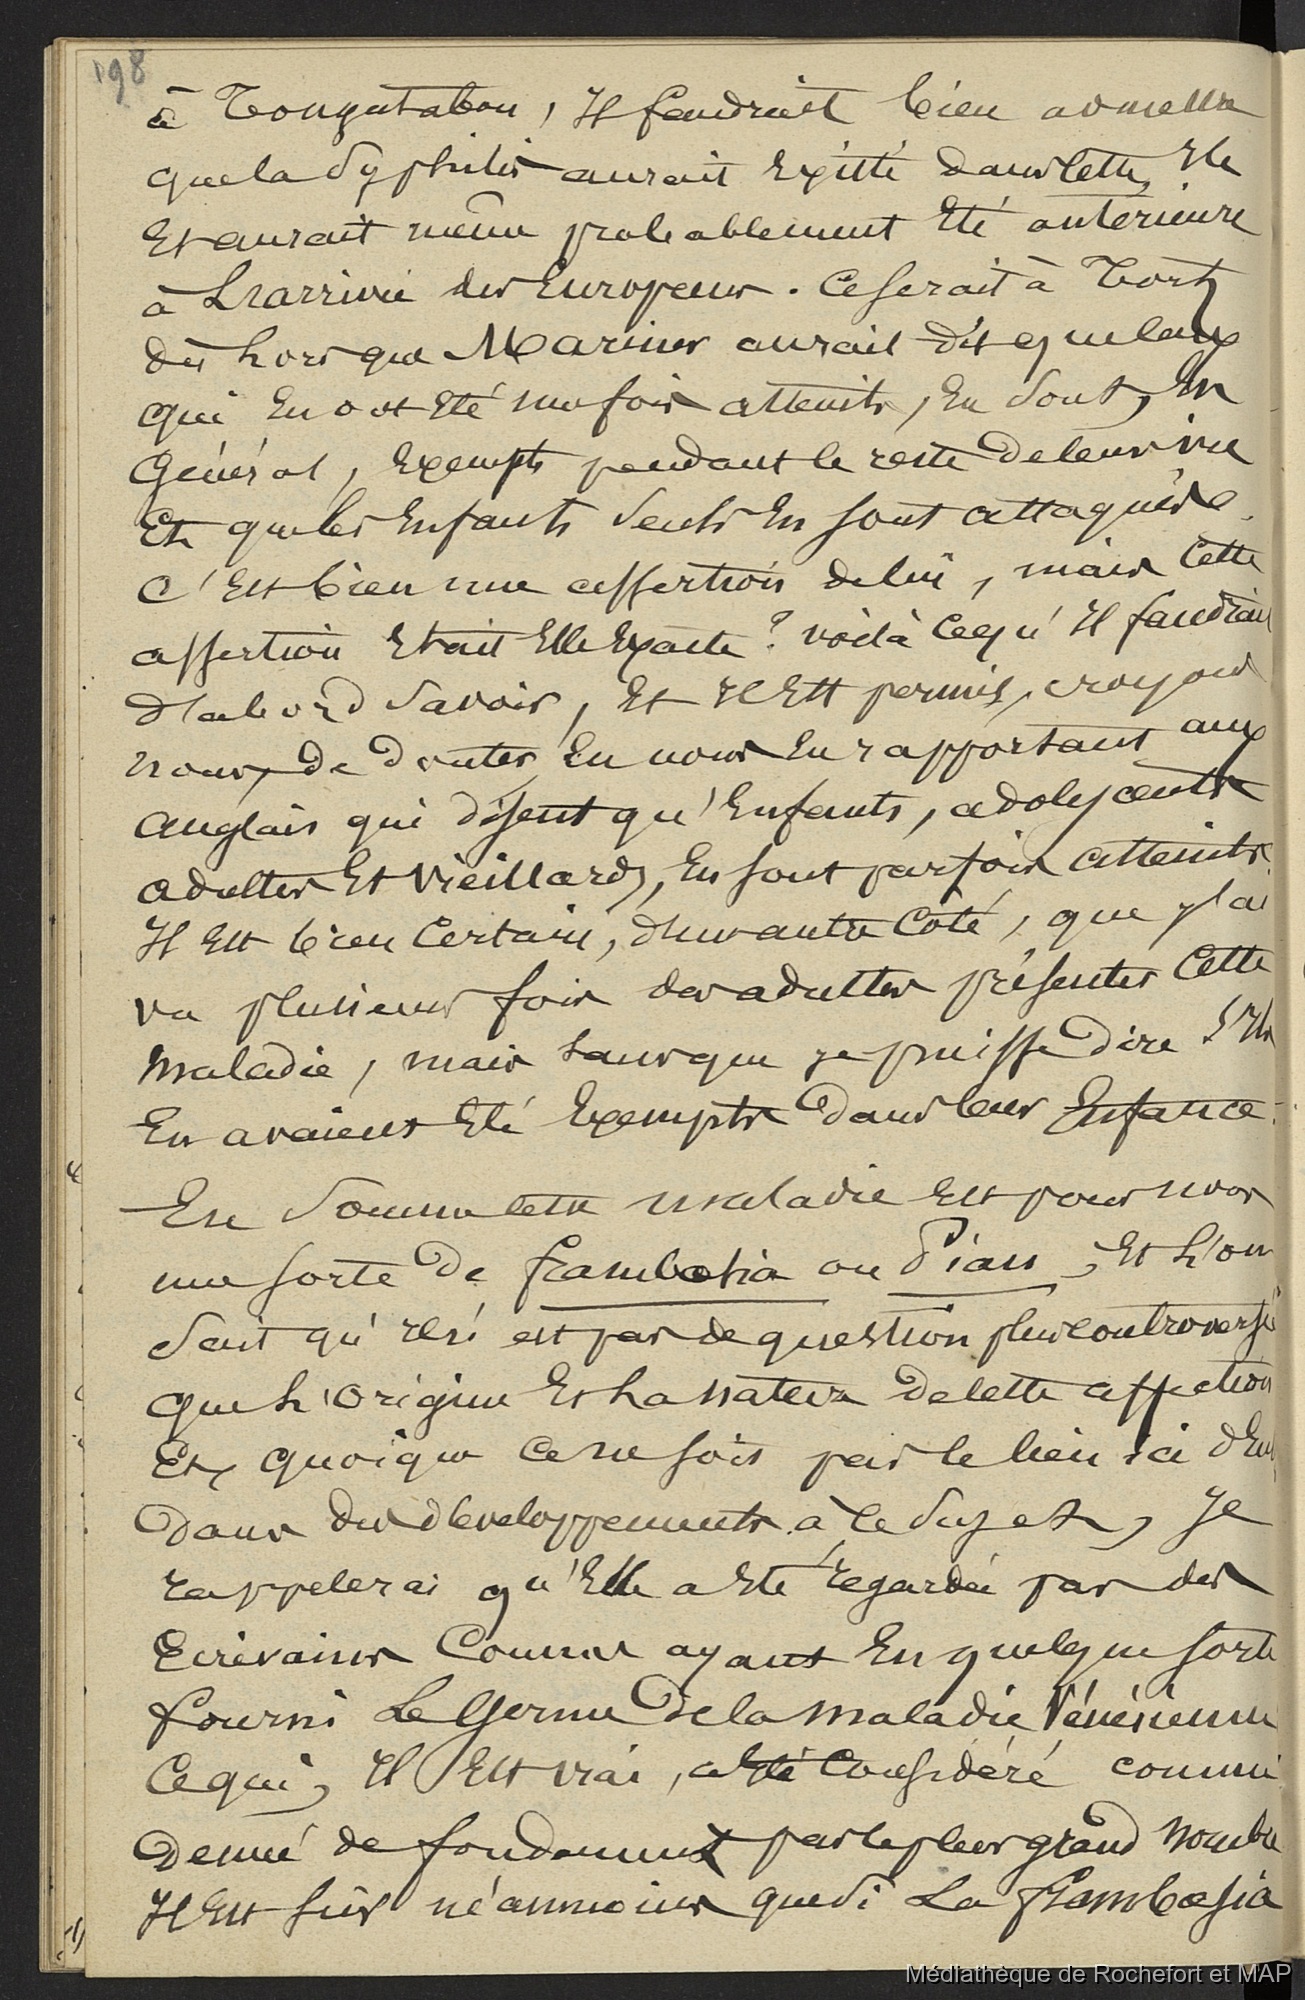 198
à Tongatabou, Il faudrait bien admettre
que la Syphilis aurait Existé dans cette Ile
Et aurait même probablement Eté antérieure
à L'arrivée des Européens. Ce serait à Tort
dès Lors que Mariner aurait dit que ceux
qui En ont Eté une fois atteints, En Sont, En
Général, Exempts pendant le reste de leur vie
Et que les Enfants Seuls En sont attaqués.
C'Est bien une assertion de lui, mais Cette
assertion Etait Elle Exacte? voilà Ce qu'Il faudrait
d'abord Savoir, Et Il Est permis, croyons
nous, de douter, En nous En rapportant aux
Anglais qui disent qu'Enfants, adolescents
adultes Et Vieillards, En sont parfois atteints.
Il Est bien Certain, d'un autre Côté, que j'ai
vu plusieurs fois des adultes présenter Cette
maladie, mais sans que je puisse dire S'Ils
En avaient Eté Exempts dans leur Enfance.
En Somme cette maladie Est pour nous
une sorte de frambœsia ou Pian, Et L'on
Sait qu'Il n'est pas de question plus controversée
que L'Origine Et La nature de cette affection
Et, quoique ce ne soit pas le lieu ici d'En
dans des développements à ce Sujet, Je
rappelerai qu'Elle a Eté regardée par des
Ecrivains Comme ayant En quelque sorte
fourni Le Germe de la maladie Vénérienne
Ce qui, Il Est vrai, a Eté Considéré comme
Denué de fondement par le plus grand nombre
Il Est sûr néanmoins que Si La frambœsia
Médiathèque de Rochefort et MAP